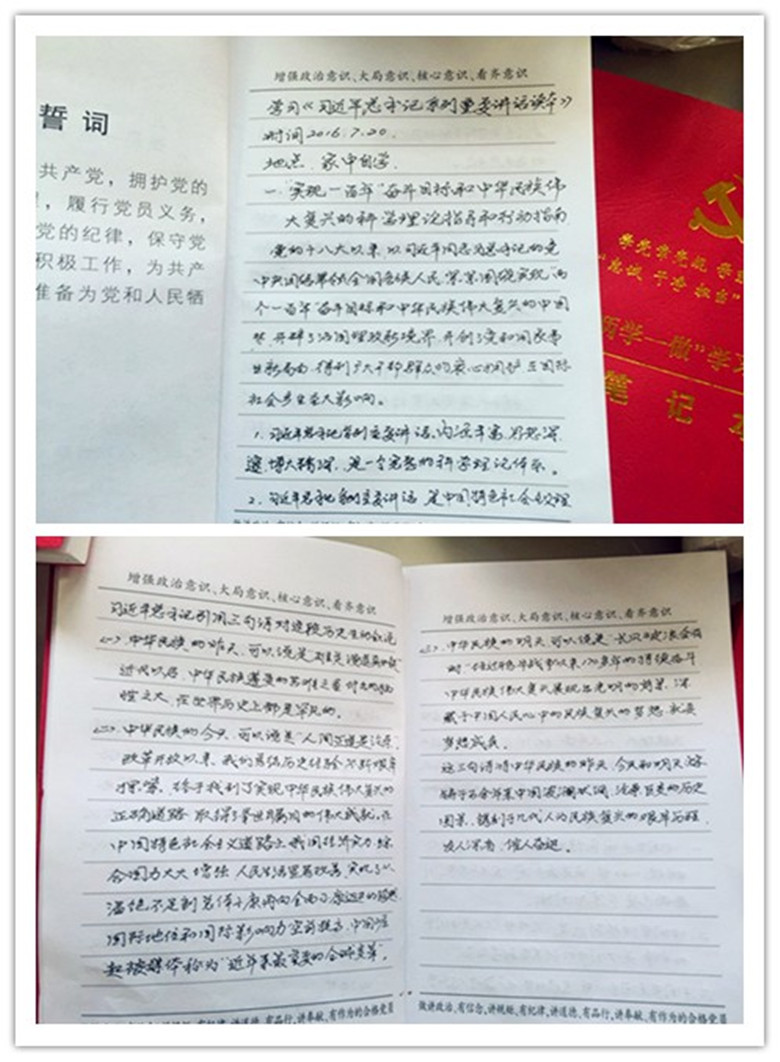 誓 词
共产党，拥护党的
，履行党员义务，
党的纪律，保守党
积极工作，为共产
准备为党和人民牺
增强政治意识、大局意识、核心意识、看齐意识
学习《习近平总书记系列重要讲话读本》
时间2016.7.20.
地点、家中自学.
一."实现一百年"奋斗目标和中华民族伟
大复兴的科学理论指导和行动指南
党的十八大以来，以习近平同志为总书记的党
中央团结带领全国各族人民，紧紧围绕实现"两
个一百年"奋斗目标和中华民族伟大复兴的中国
梦，开辟了治国理政新境界，开创了党和国家事
业新局面，得到广大干部群众的衷心拥护，在国际
社会产生重大影响。
1、习近平总书记系列重要讲话，内涵丰富、思想深
邃、博大精深，是一个完整的科学理论体系。
2、习近平总书记系列重要讲话，是中国特色社会主义理
学习
笔 记 本
增强政治意识、大局意识、核心意识、看齐意识
习近平总书记引用三句诗对这段历史生动叙说
(一)、中华民族的昨天，可以说是"雄关漫道真如铁"
近代以后，中华民族遭受的苦难之重，付出的牺
牲之大，在世界历史上都是罕见的。
(二)、中华民族的今天，可以说是"人间正道是沧桑"
改革开放以来，我们总结历史经验，不断艰辛
探索，终于找到了实现中华民族伟大复兴的
正确道路，取得了举世瞩目的伟大成就，在
中国特色社会主义道路上，我国经济实力、综
合国力大大增强，人民生活显著改善，实现了从
温饱不足到总体小康再向全面小康迈进的
国际地位和国际影响力空前提高，中国崛
起被媒体称为"近年来最重要的全球变革"。
讲规矩、有纪律，讲道德、有品行，讲奉献、有作为的合格党员
增强政治意识、大局意识、核心意识、看齐意识
(三)、中华民族的明天，可以说是"长风破浪会有
时"经过鸦片战争以来170多年的持续奋斗
中华民族伟大复兴展现出光明的前景，深
藏于中国人民心中的民族复兴的梦想，就要
梦想成真。
这三句诗将中华民族的昨天、今天和明天
熔铸于百余年来中国波澜状阔、沧桑巨变的历史
图景，镌刻于几代人为民族复兴的艰辛历程，
发人深省，催人奋进。
做讲政治、有信念，讲规矩、有纪律，讲道德、有品行，讲奉献、有作为的合格党员